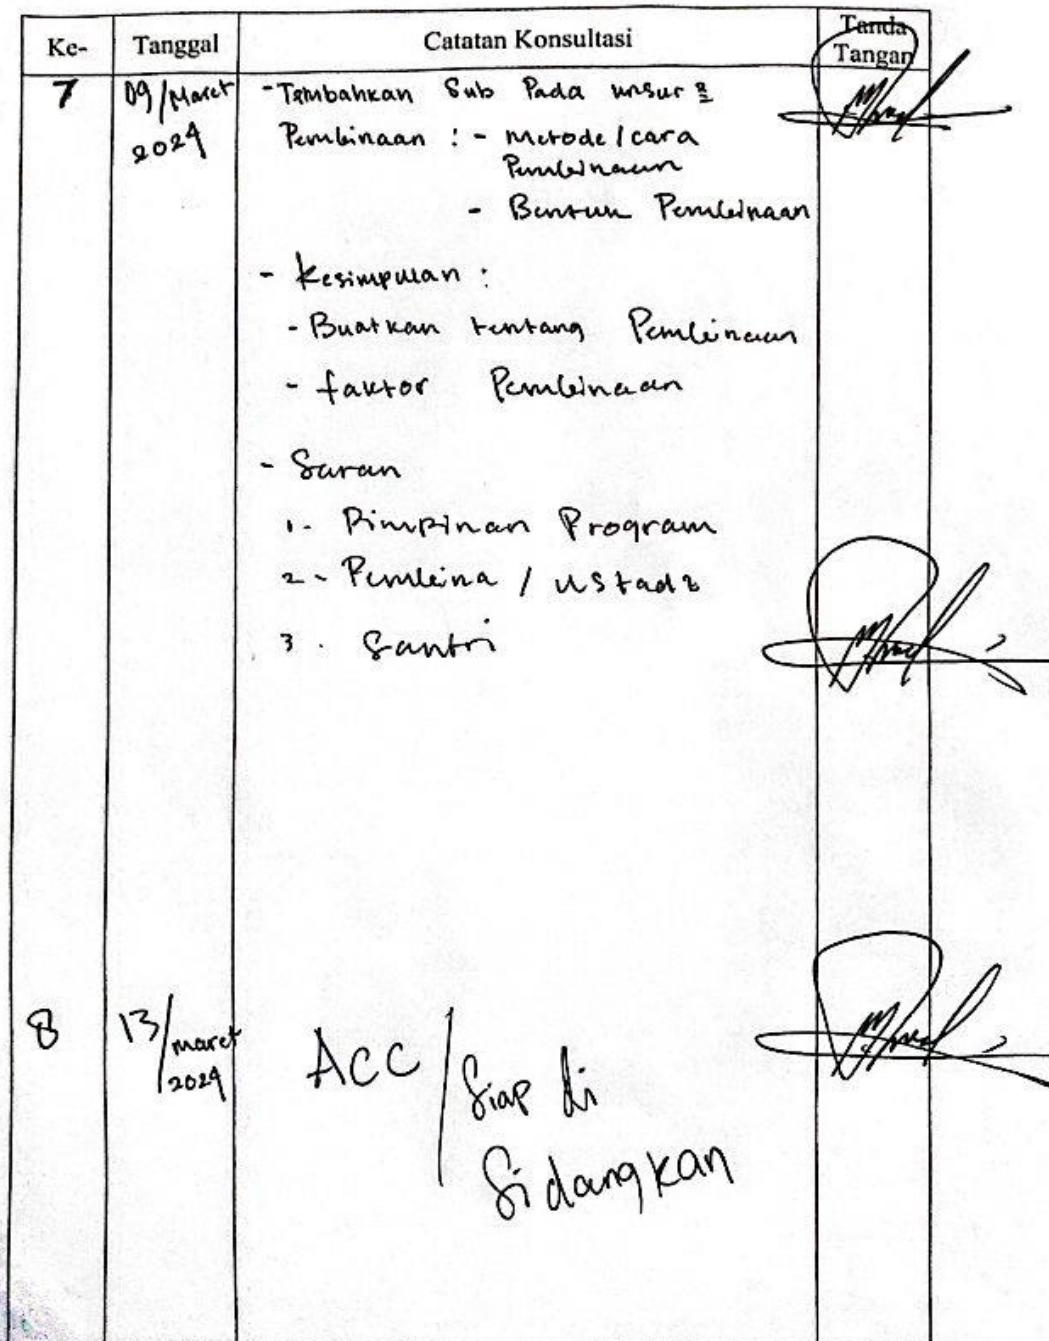 Ke- Tanggal Catatan Konsultasi Tanda Tangan
7 09/Maret 2024 - Tambahkan Sub Pada unsur2
Pembinaan : - metode/cara
Pembinaan
- Bentuk Pembinaan
- Kesimpulan :
- Buatkan tentang Pembinaan
- faktor Pembinaan
- Saran
1. Pimpinan Program
2 - Pembina / ustadz
3. Santri
8 13/maret 2024 ACC / Siap di
Sidangkan